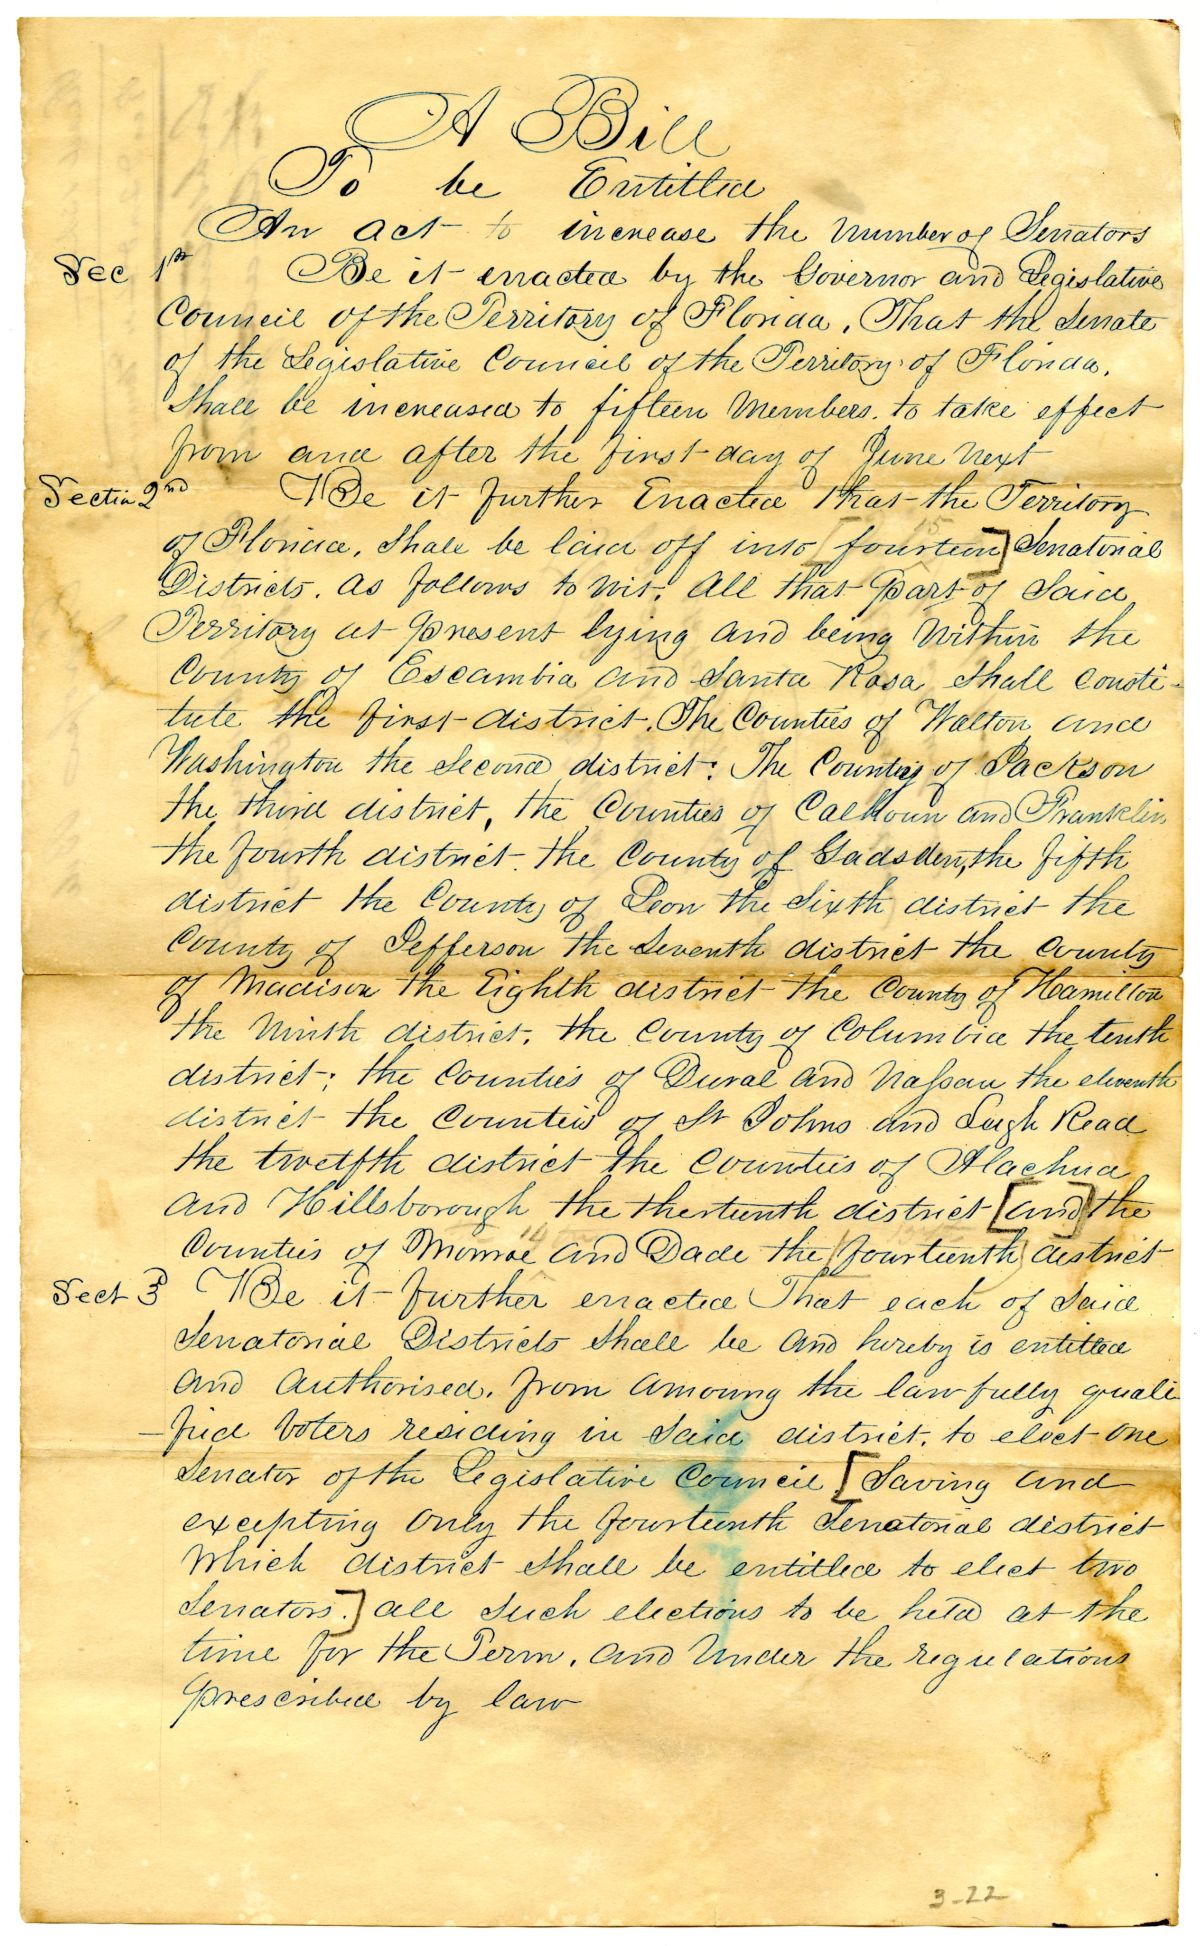 A Bill
To be Entitled
An act to increase the Number of Senators
Sec 1st Be it enacted by the Governor and Legislative
Council of the Territory of Florida, That the Senate
of the Legislative Council of the Territory of Florida,
Shall be increased to fifteen Members. to take effect
from and after the first day of June Next
Sectin 2nd Be it further Enacted that the Territory
of Florida, Shall be laid off into [fourteen] 15 Senatorial
Districts. as follows to wit; all that part of Said
Territory at present lying and being Within the
County of Escambia and Santa Rosa shall consti-
tute the first district. The Counties of Walton and
Washington the Second district; The County of Jackson
the third district, the Counties of Calhoun and Franklin
the fourth district. the County of Gadsden, the fifth
district the County of Leon the Sixth district the
County of Jefferson the Seventh district the County
of Madison the Eighth district the County of Hamilton
the Ninth district, the County of Columbia the tenth
district; the Counties of Duval and Nassau the eleventh
district the Counties of St Johns and Leigh Read
the twelfth district the Counties of Alachua
and Hillsborough the therteenth district [and] the
Counties of Monroe and Dade the (fourteenth) district
Sect 3 Be it further enacted That each of Said
Senatorial Districts shall be and hereby is entitled
and authorised. from amoung the lawfully quali
-fied Voters residing in Said district. to elect one
Senator of the Legislative Council [Saving and
excepting only the fourteenth Senatorial district
Which district shall be entitled to elect two
Senators.] all such elections to be held at the
time for the Term, and Under the regulations
prescribed by law
3-22